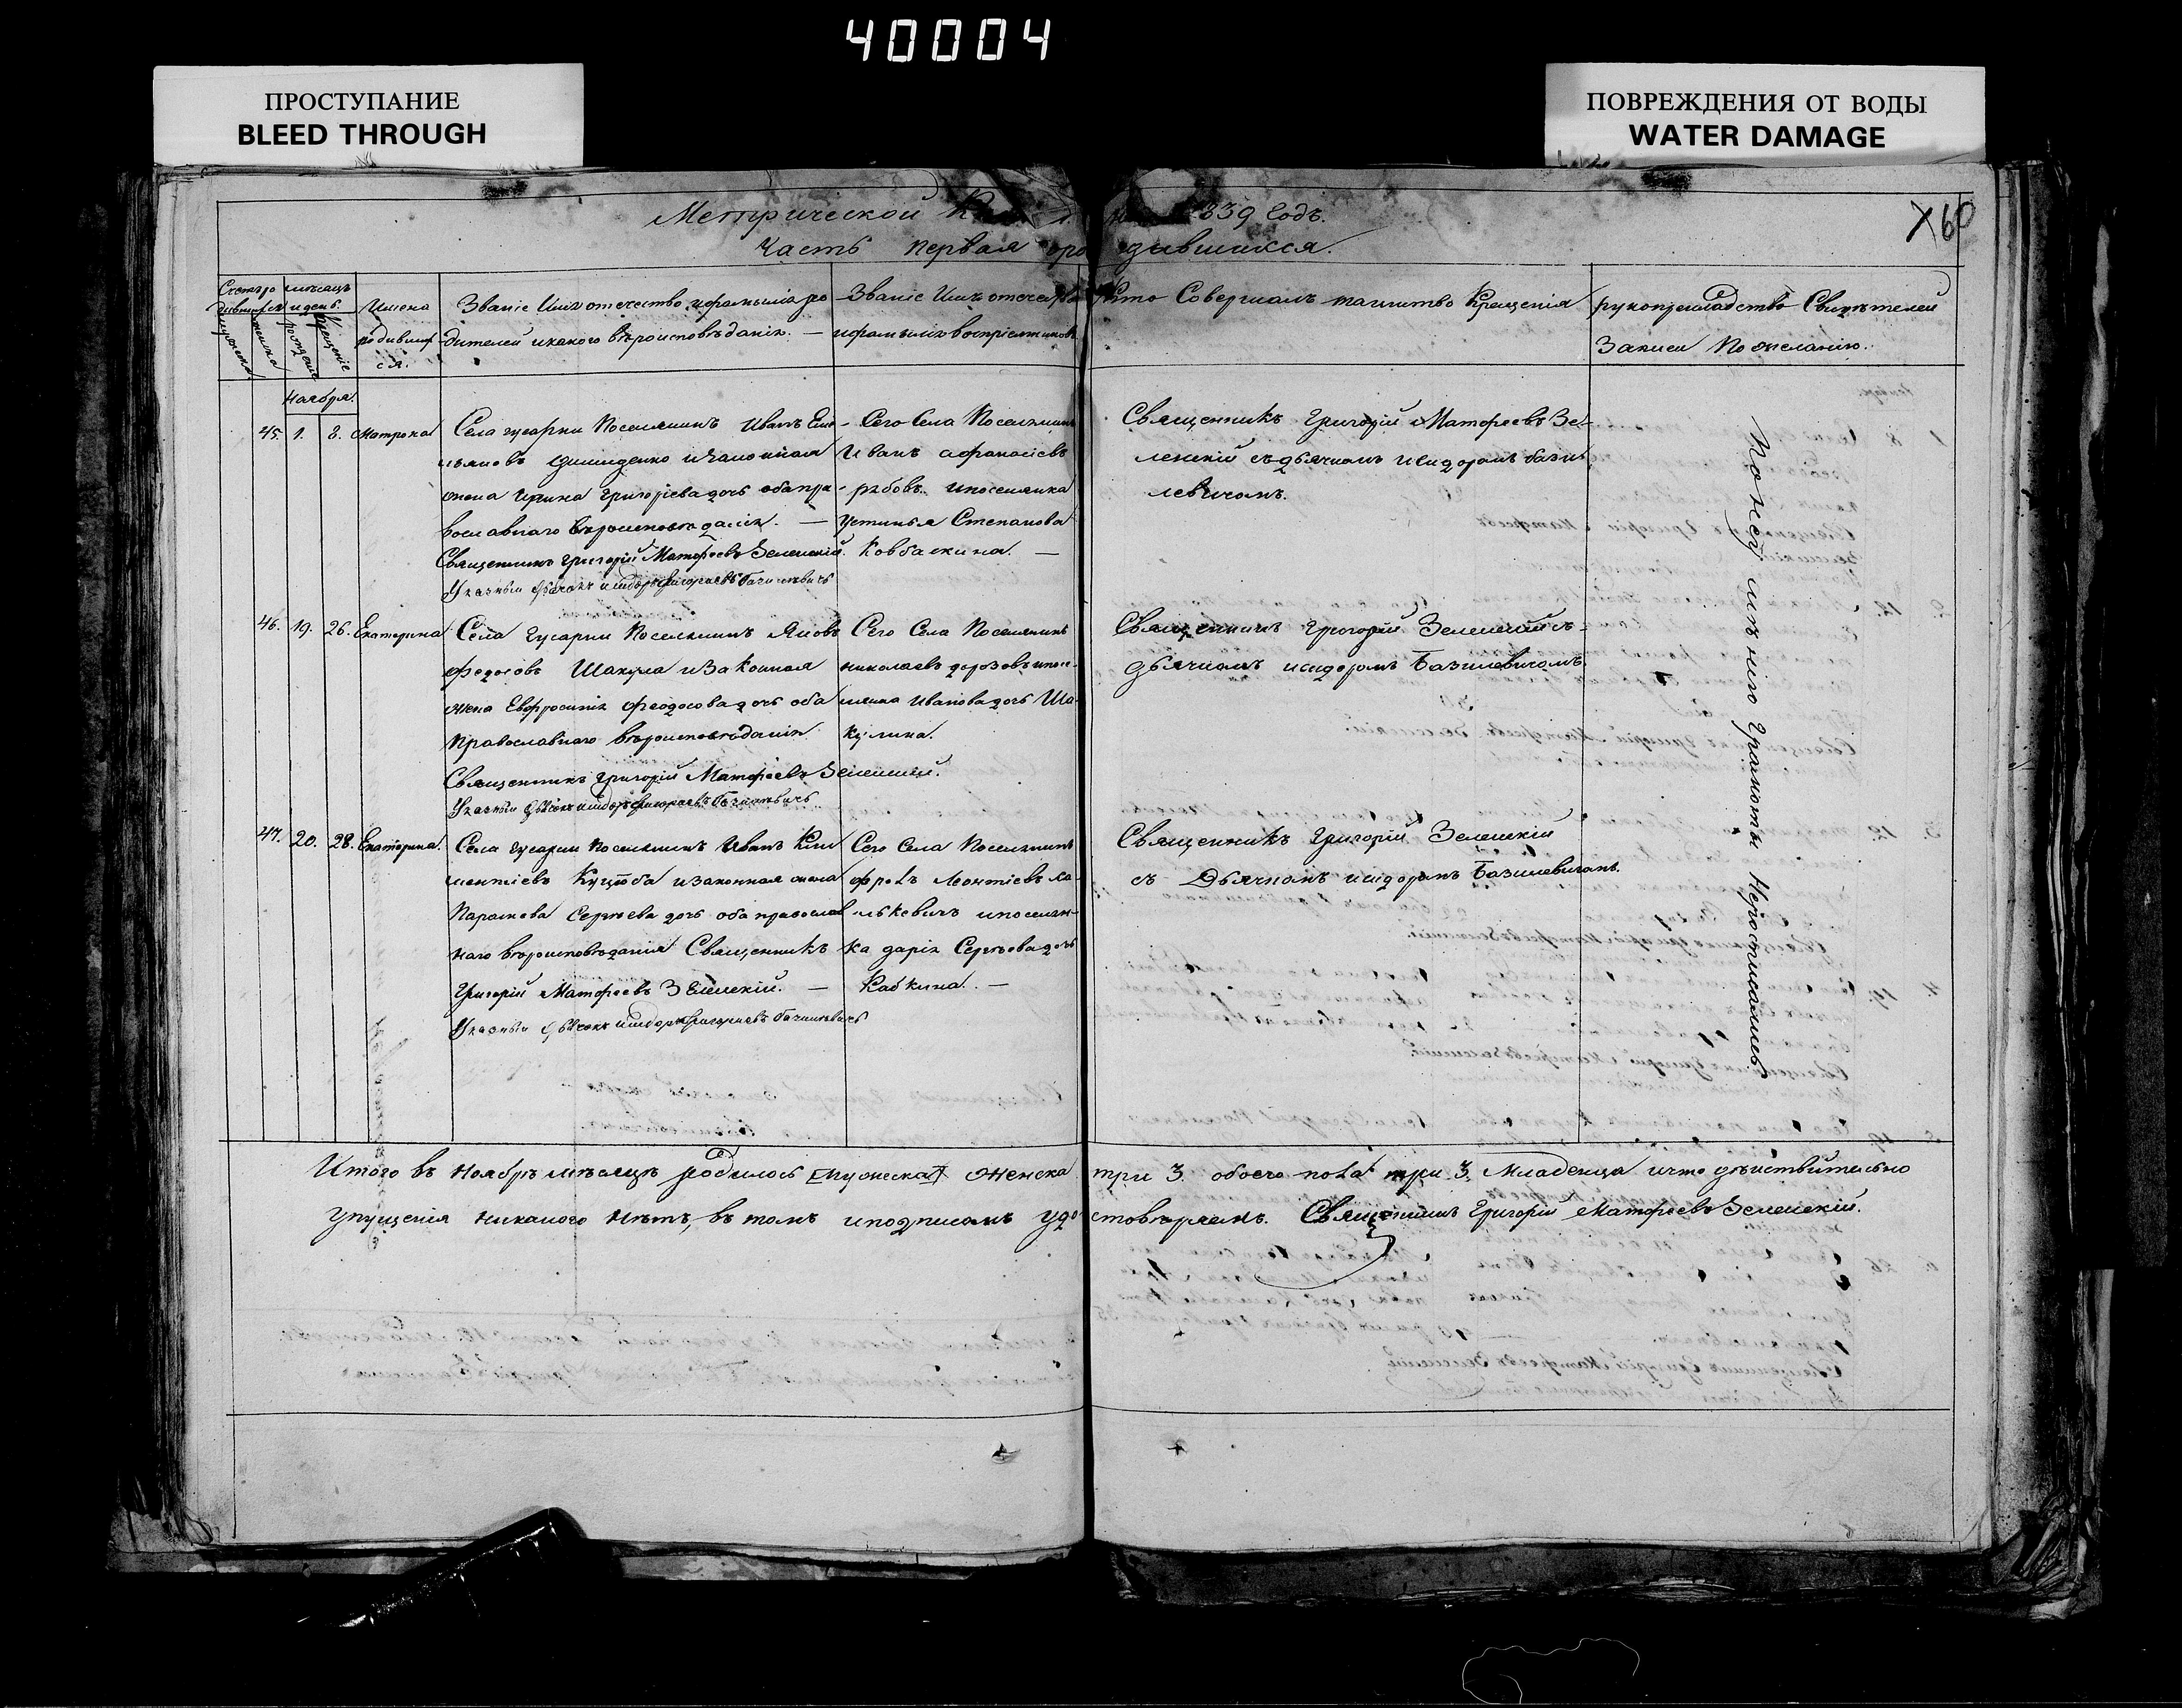 40004
ПРОСТУПАНИЕ
BLEED THROUGH
ПОВРЕЖДЕНИЯ ОТ ВОДЫ
WATER DAMAGE
Метрической 839 Годъ.
Часть первая о ро дившихся.
160
Счетъ ро дившихся
мужеска
женска
мѣсяцъ и день
рожденіе
крещеніе
Имена
родивших
ся.
Званіе Имя отечество и фамилія ро
дителей и какого вѣроисповѣданія. —
Званіе Имя отечество
и фамилія воспріемниковъ
Кто Совершалъ таинство Крещенія
рукоприкладство Свидѣтелей
Записи По желанію.
Ноября.
45. 1. 8. Матрона
Села гусарки Поселянинъ Иванъ Еме-
льяновъ и законная
жена Ирина Григорьева дочь оба пра-
вославнаго вѣроисповѣданія. —
Священникъ Григорій Матфеевъ Зеленскій.
Указный Дьячокъ Исидоръ Григорьевъ Базилевичь
Сего Села Поселянинъ
Иванъ Афанасіевъ
рябовъ и поселянка
Устинья Степанова
Ковбаскина. —
Священникъ Григорій Матфеевъ Зе-
ленскій съ дьячкомъ Исидоромъ бази-
левичомъ.
46. 19. 26. Екатерина
Села Гусарки Поселянинъ Яковъ
Федосовъ Шакула и Законная
жена Евфросинія Феодосова дочь оба
Православнаго вѣроисповѣданія.
Священникъ Григорій Матфеевъ Зеленскій.
Указный Дьячокъ Исидоръ Григорьевъ Базилевичь
Сего Села Поселянинъ
николаевъ дорозовъ и посе-
лянка Иванова дочь Ша-
кулина.
Священникъ Григорій Зеленскій съ-
дьячкомъ исидоромъ Базилевичомъ.
47. 20. 28. Екатерина.
Села гусарки поселянинъ Иванъ Кли
ментіевъ Куцюба и законная жена
Параскева Сергѣева дочь оба православ
наго вѣроисповѣданія Священникъ
Григорій Матфеевъ Зеленскій. —
Указный Дьячокъ Исидоръ Григорьевъ Базилевичь
Сего Села Поселянинъ
фролъ Леонтіевъ ла-
лькевичъ и поселян-
ка дарія Сергѣева дочь
Кабкина. —
Священникъ Григорій Зеленскій
съ Дьячкомъ исидоромъ Базилевичомъ.
По неумѣнію Грамоты Неросписались
Итого въ Ноябрѣ мѣсяцѣ родилось [мужеска] женска три 3. обоего пола три 3. Младенца и что дѣйствительно
упущенія никакого нѣтъ, въ томъ и подписомъ удо стовѣряемъ. Священникъ Григорій Матфеевъ Зеленскій.